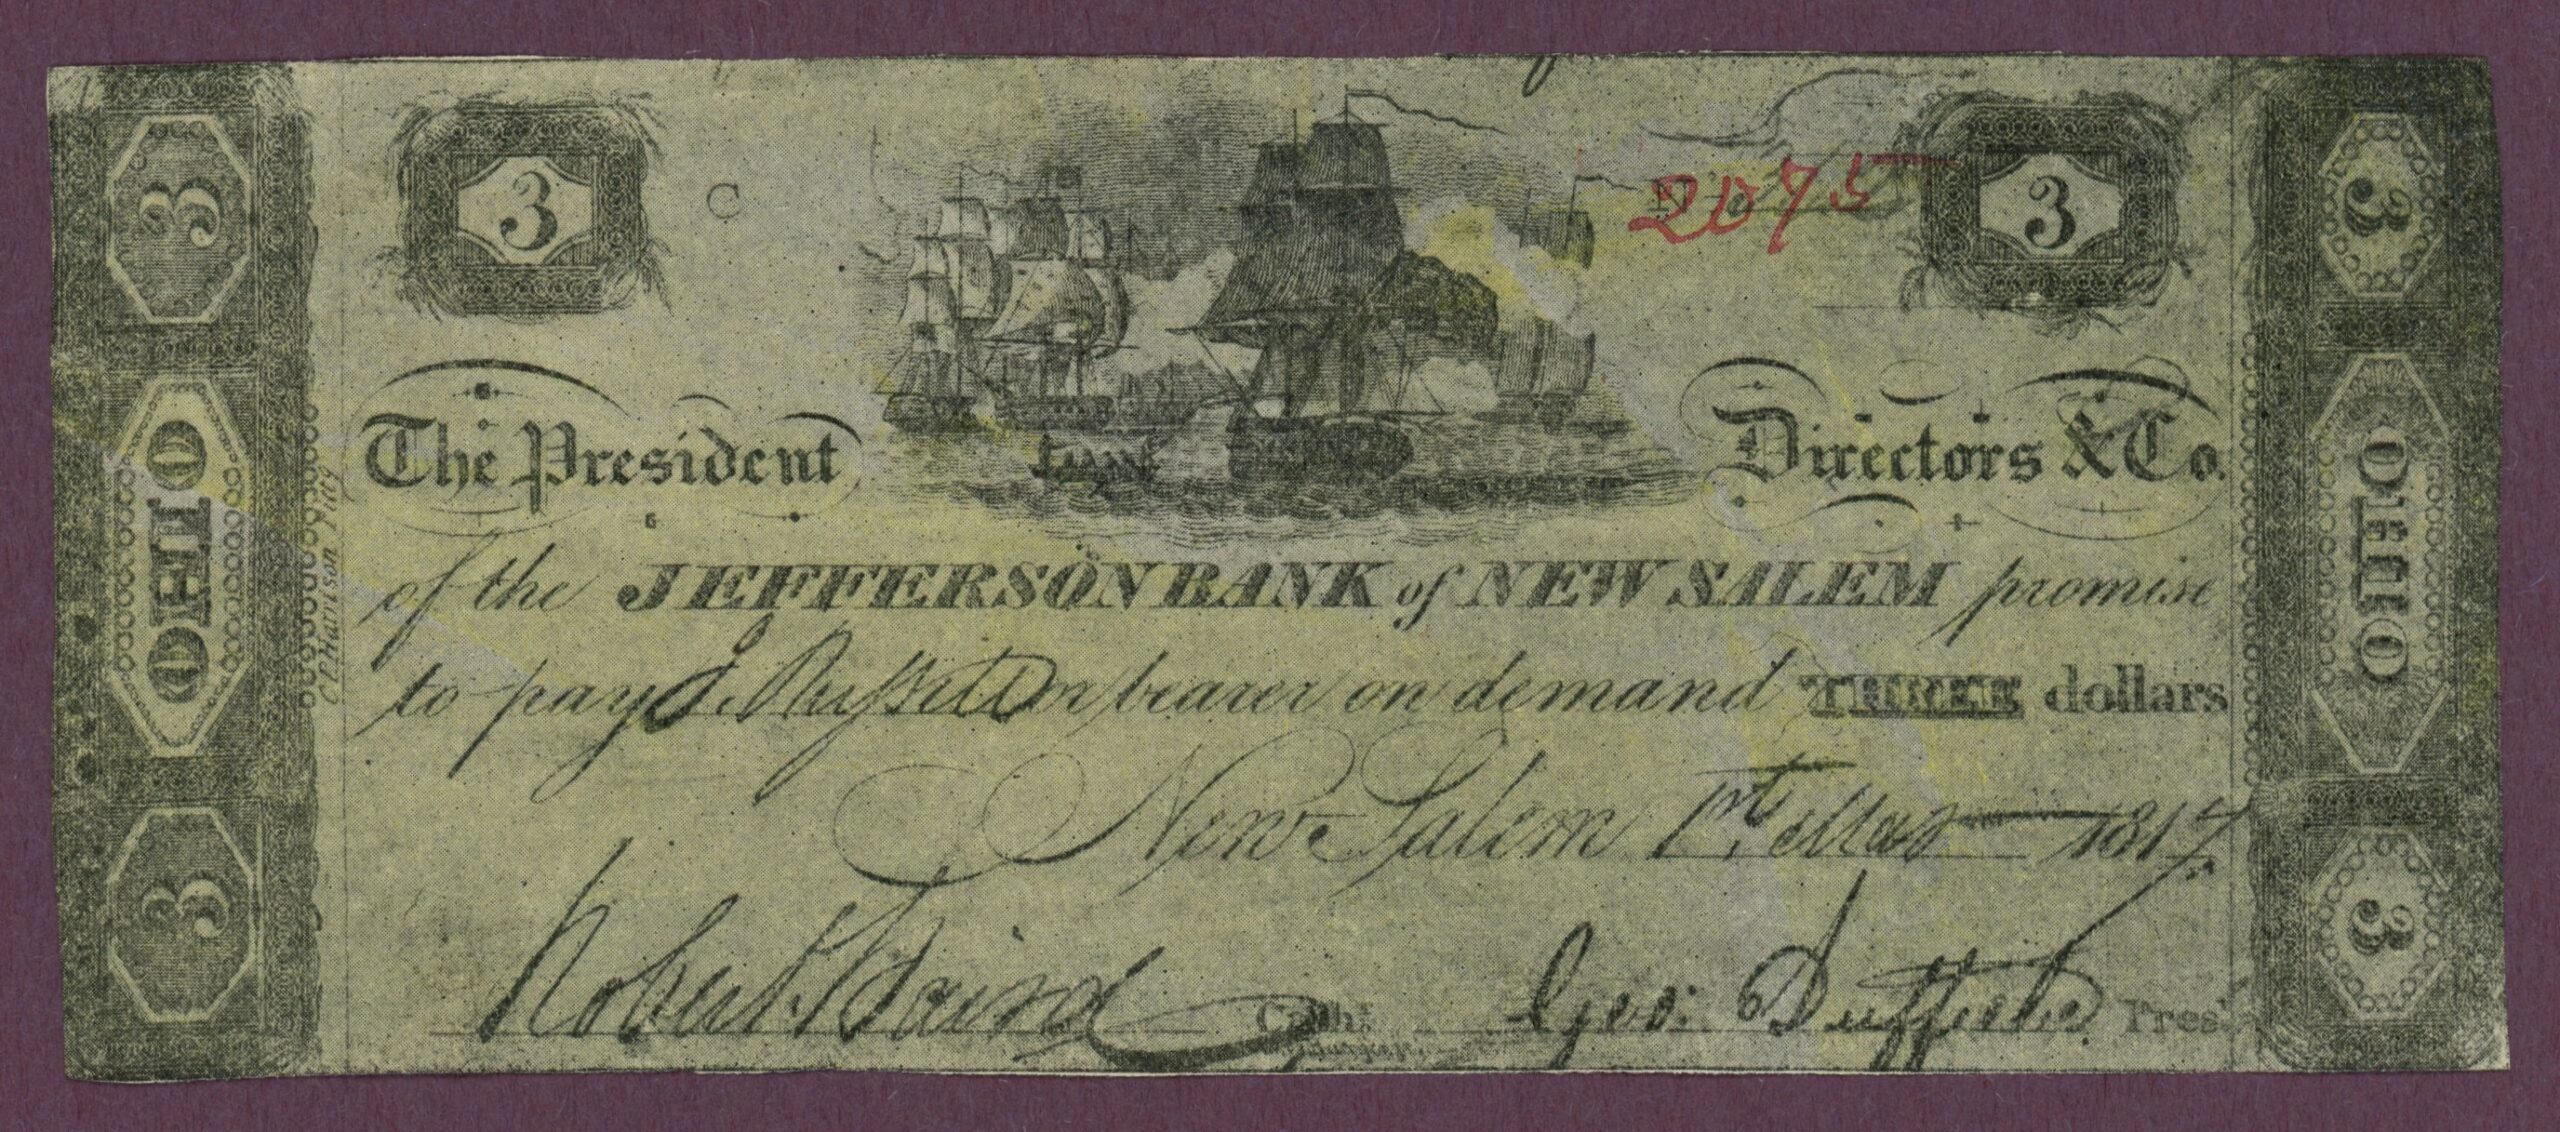 3
3
C
3
3
2075
The President
Directors & Co.
of the JEFFERSON BANK of NEW SALEM promise
to pay or bearer on demand THREE dollars
New Salem 1st 1817
Robert Baird Cash.r
Geo: Pres.t
OHIO
OHIO
C P Harrison
3
3